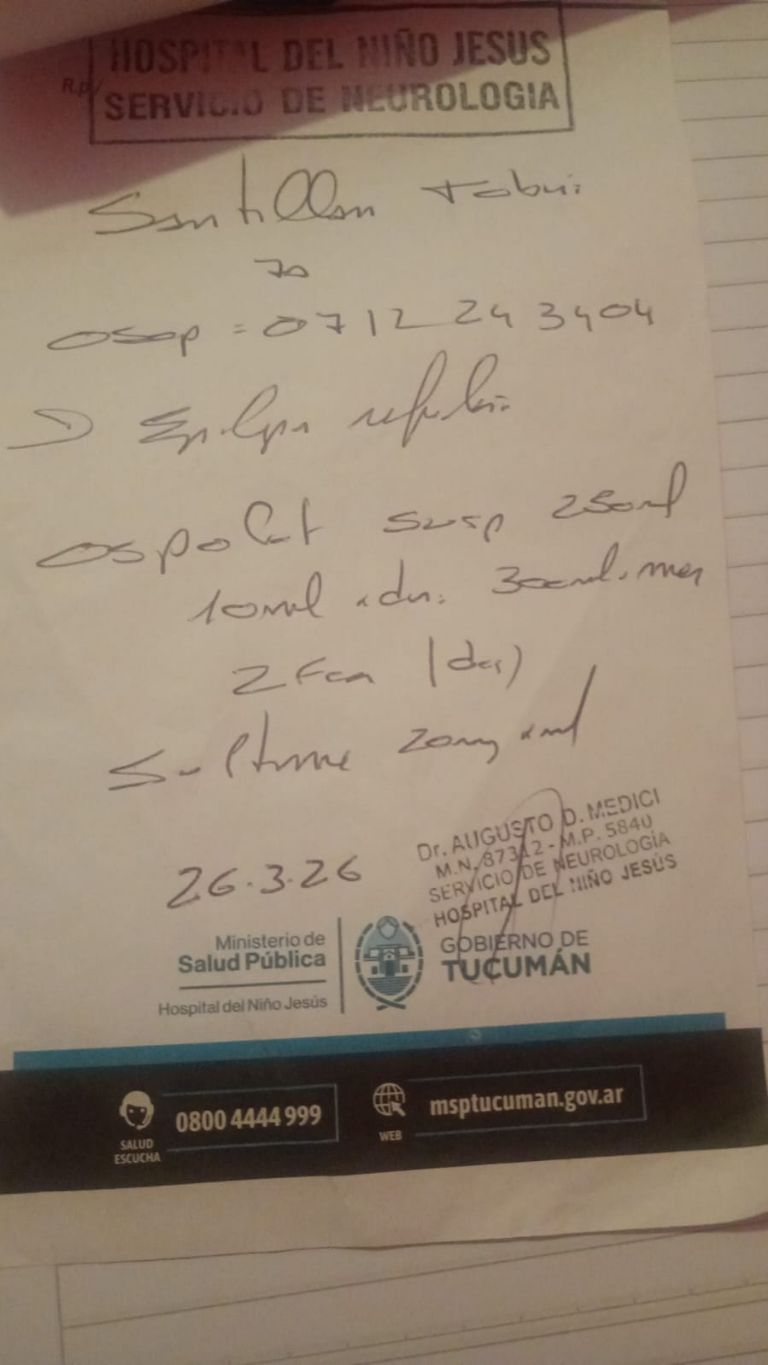 HOSPITAL DEL NIÑO JESUS
R.p/
SERVICIO DE NEUROLOGIA
Santillan
70
osep = 0712 243404
D Epilepsia refractaria
ospolot susp 250ml
10ml x dia. 300ml. mes
2 Fcos (dos)
Sultiame 20mg x ml
26.3.26
Dr. AUGUSTO D. MEDICI
M.N. 87312 - M.P. 5840
SERVICIO DE NEUROLOGÍA
HOSPITAL DEL NIÑO JESÚS
Ministerio de
Salud Pública
Hospital del Niño Jesús
GOBIERNO DE
TUCUMÁN
SALUD
ESCUCHA
0800 4444 999
WEB
msptucuman.gov.ar